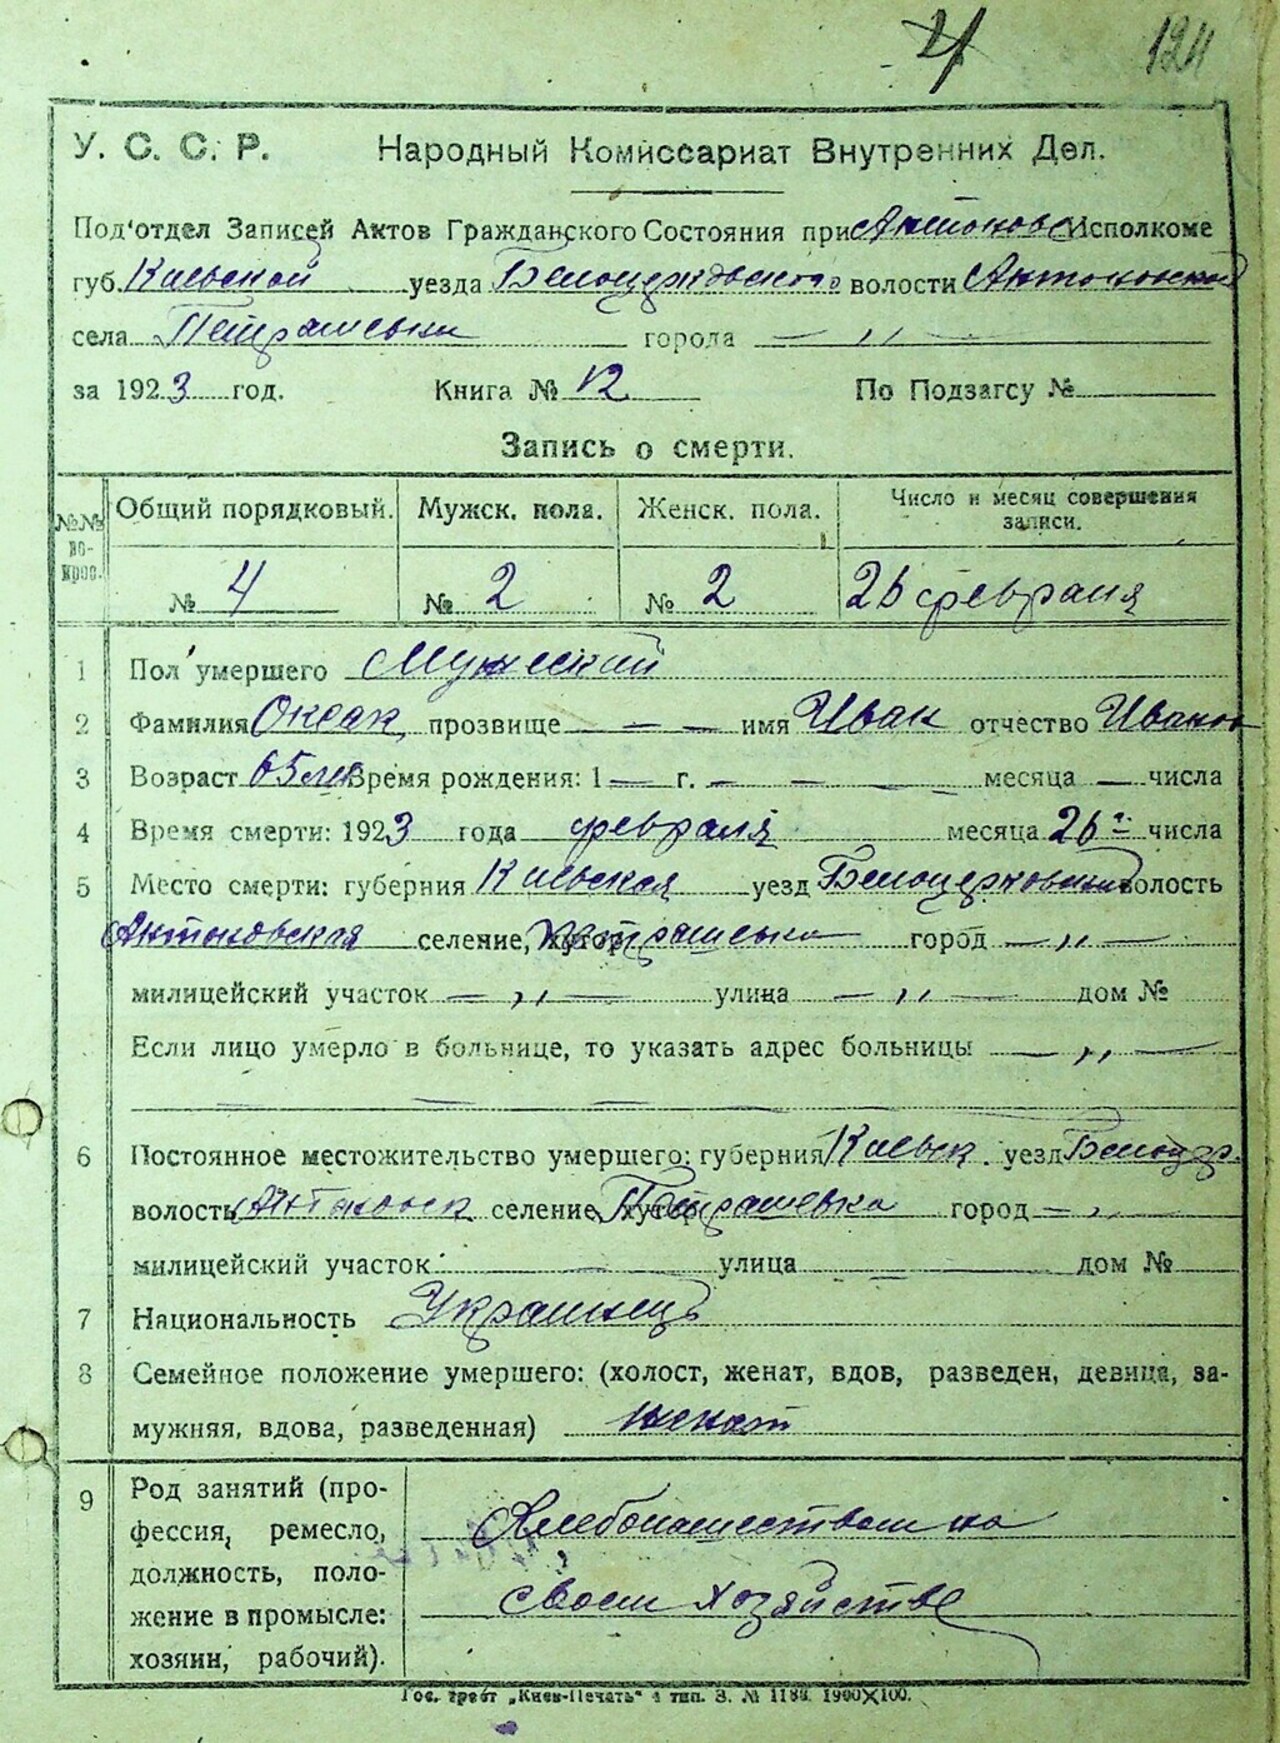 4 124
У. С. С. Р. Народный Комиссариат Внутренних Дел.
Под'отдел Записей Актов Гражданского Состояния при Антонов Исполкоме
губ. Киевской уезда Белоцерковского волости Антоновской
села Петрашевки города — „ —
за 1923 год. Книга № 12 По Подзагсу №
Запись о смерти.
№№ вопрос. Общий порядковый. Мужск. пола. Женск. пола. Число и месяц совершения записи.
№ 4 № 2 № 2 26 февраля
1 Пол умершего Мужеский
2 Фамилия Оксак прозвище — — — имя Иван отчество Иванов
3 Возраст 65 лет Время рождения: 1 — г. — — — месяца — числа
4 Время смерти: 1923 года февраля месяца 26 числа
5 Место смерти: губерния Киевская уезд Белоцерковский волость
Антоновская селение, хутор Петрашевка город — „ —
милицейский участок — „ — улица — „ — дом №
Если лицо умерло в больнице, то указать адрес больницы — „ —
6 Постоянное местожительство умершего: губерния Киевск. уезд Белоцер.
волость Антоновск селение, хутор Петрашевка город — „ —
милицейский участок — улица — дом №
7 Национальность Украинець
8 Семейное положение умершего: (холост, женат, вдов, разведен, девица, за-
мужняя, вдова, разведенная) женат
9 Род занятий (про-
фессия, ремесло,
должность, поло-
жение в промысле:
хозяин, рабочий).
Хлебопашеством на
своем хозяйстве
Гос. трест „Киев-Печать" 4 тип. З. № 1188. 1900X100.